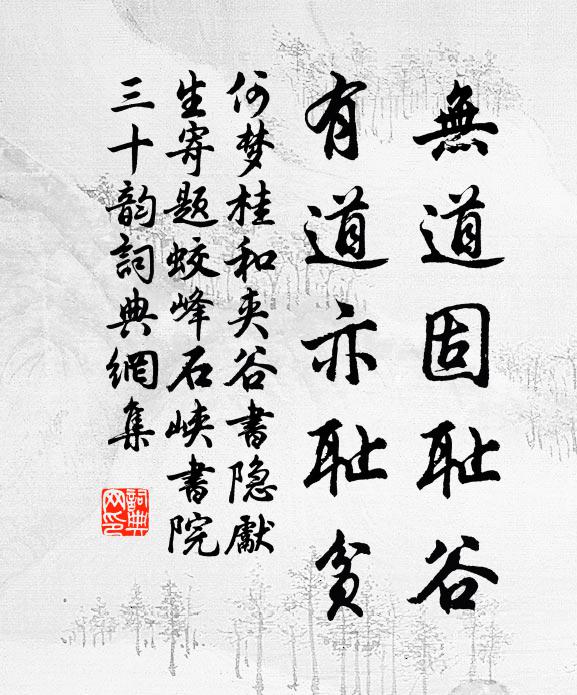 無道固耻谷
有道亦耻貧
何梦桂和夹谷書隐獻
生寄題蛟峰石峡書院
三十韵詞典網集
詞典
网印